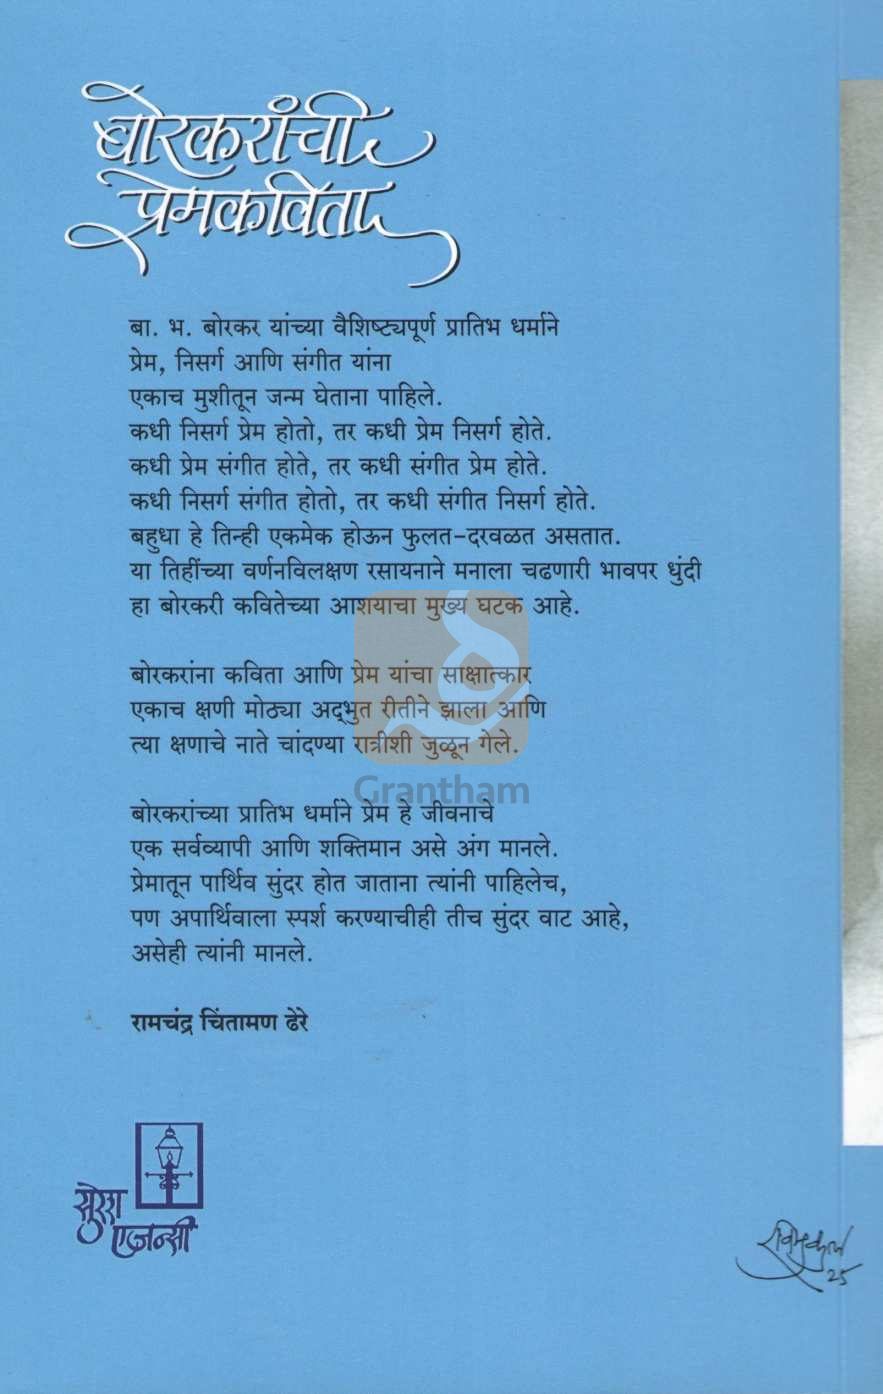 बोरकरांची
प्रेमकविता
बा. भ. बोरकर यांच्या वैशिष्ट्यपूर्ण प्रातिभ धर्माने
प्रेम, निसर्ग आणि संगीत यांना
एकाच मुशीतून जन्म घेताना पाहिले.
कधी निसर्ग प्रेम होतो, तर कधी प्रेम निसर्ग होते.
कधी प्रेम संगीत होते, तर कधी संगीत प्रेम होते.
कधी निसर्ग संगीत होतो, तर कधी संगीत निसर्ग होते.
बहुधा हे तिन्ही एकमेक होऊन फुलत-दरवळत असतात.
या तिहींच्या वर्णनविलक्षण रसायनाने मनाला चढणारी भावपर धुंदी
हा बोरकरी कवितेच्या आशयाचा मुख्य घटक आहे.
बोरकरांना कविता आणि प्रेम यांचा साक्षात्कार
एकाच क्षणी मोठ्या अद्‌भुत रीतीने झाला आणि
त्या क्षणाचे नाते चांदण्या रात्रीशी जुळून गेले.
Grantham
बोरकरांच्या प्रातिभ धर्माने प्रेम हे जीवनाचे
एक सर्वव्यापी आणि शक्तिमान असे अंग मानले.
प्रेमातून पार्थिव सुंदर होत जाताना त्यांनी पाहिलेच,
पण अपार्थिवाला स्पर्श करण्याचीही तीच सुंदर वाट आहे,
असेही त्यांनी मानले.
रामचंद्र चिंतामण ढेरे
सुरेश
एजन्सी
रविमुकुल
25